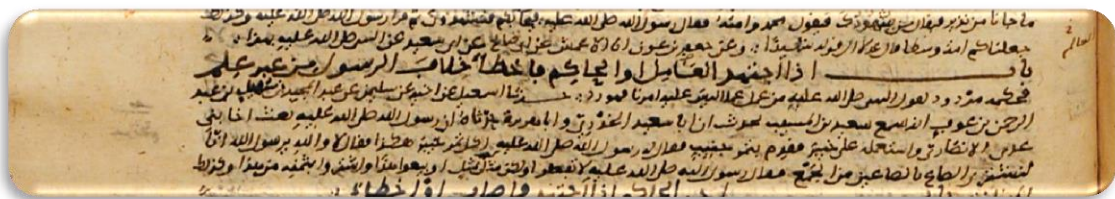 ما جانا من نذير فيقال من شهودك فيقول محمد وامته فقال رسول الله صلى الله عليه فيجاء بكم فتشهدون ثم قرا رسول الله صلى الله عليه وكذلك
العالم
جعلناكم امة وسطا قال عدلا الى قوله شهيدا وعن جعفر بن عون انا الاعمش عن ابي صالح عن ابي سعيد عن النبي صلى الله عليه بهذا
باب اذا اجتهد العامل او الحاكم فاخطأ خلاف الرسول من غير علم
فحكمه مردود لقول النبي صلى الله عليه من عمل عملا ليس عليه امرنا فهو رد حدثنا اسمعيل عن اخيه عن سليمن عن عبد المجيد بن سهيل بن عبد
الرحمن بن عوف انه سمع سعيد بن المسيب يحدث ان ابا سعيد الخدري وابا هريرة حدثاه ان رسول الله صلى الله عليه بعث اخا بني
عدي الانصاري واستعمله على خيبر فقدم بتمر جنيب فقال له رسول الله صلى الله عليه اكل تمر خيبر هكذا فقال لا والله يرسول الله انا
لنشتري الصاع بالصاعين من الجمع فقال رسول الله صلى الله عليه لا تفعلوا ولكن مثلا بمثل او بيعوا هذا واشتروا بثمنه من هذا وكذلك
الحاكم اذا اجتهد فاصاب او اخطأ